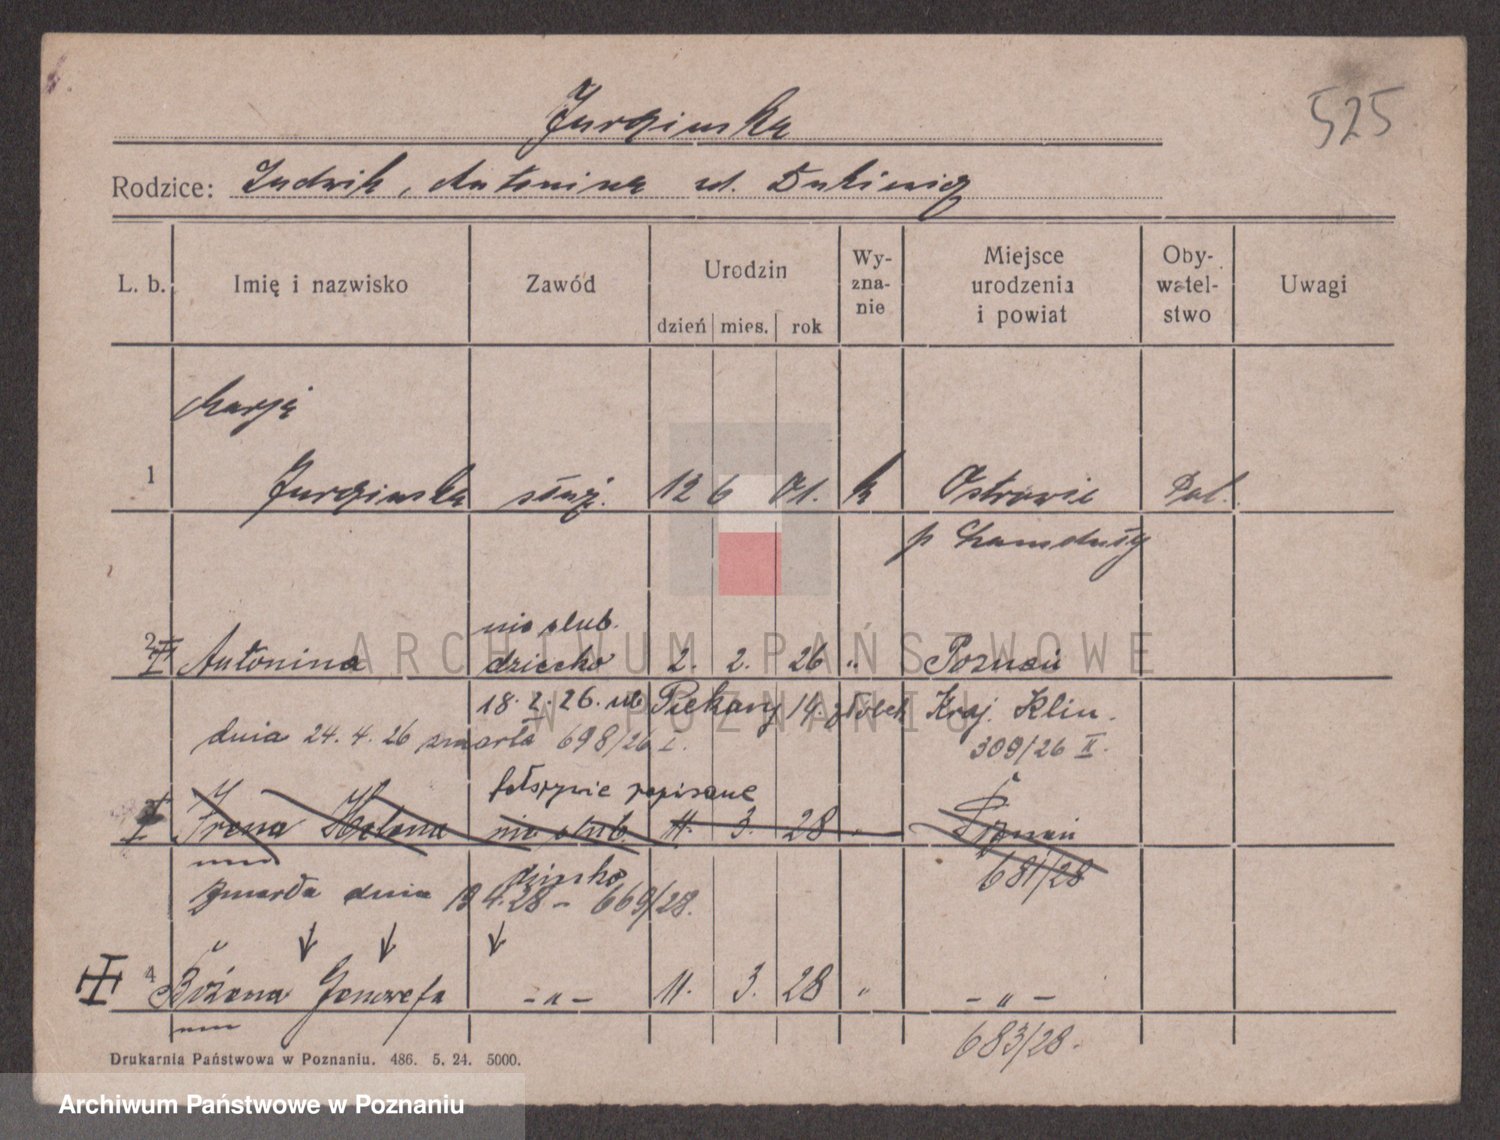 525
Jurgińska
Rodzice: Ludwik, Antonina ud. Dukiewicz
L. b. Imię i nazwisko Zawód Urodzin Wyznanie Miejsce urodzenia i powiat Obywatelstwo Uwagi
dzień mies. rok
Marja
1 Jurgińska służ. 12 6 01. k Ostrowie Pol.
p Szamotuły
nie ślub.
2 Antonina dziecko 2. 2. 26 " Poznań
18.2.26. ul. Piekary 14. Kraj. Klin.
dnia 24.4.26 zmarła 698/26 I. 309/26 II.
fałszywie zapisane
Irena Helena nie ślub. 11. 3. 28 Poznań
dziecko 681/28
zmarła dnia 19 4.28 - 669/28.
4 Bożena Genowefa -"- 11. 3. 28 " -"-
683/28.
Drukarnia Państwowa w Poznaniu. 486. 5. 24. 5000.
ARCHIWUM PAŃSTWOWE
W POZNANIU
Archiwum Państwowe w Poznaniu